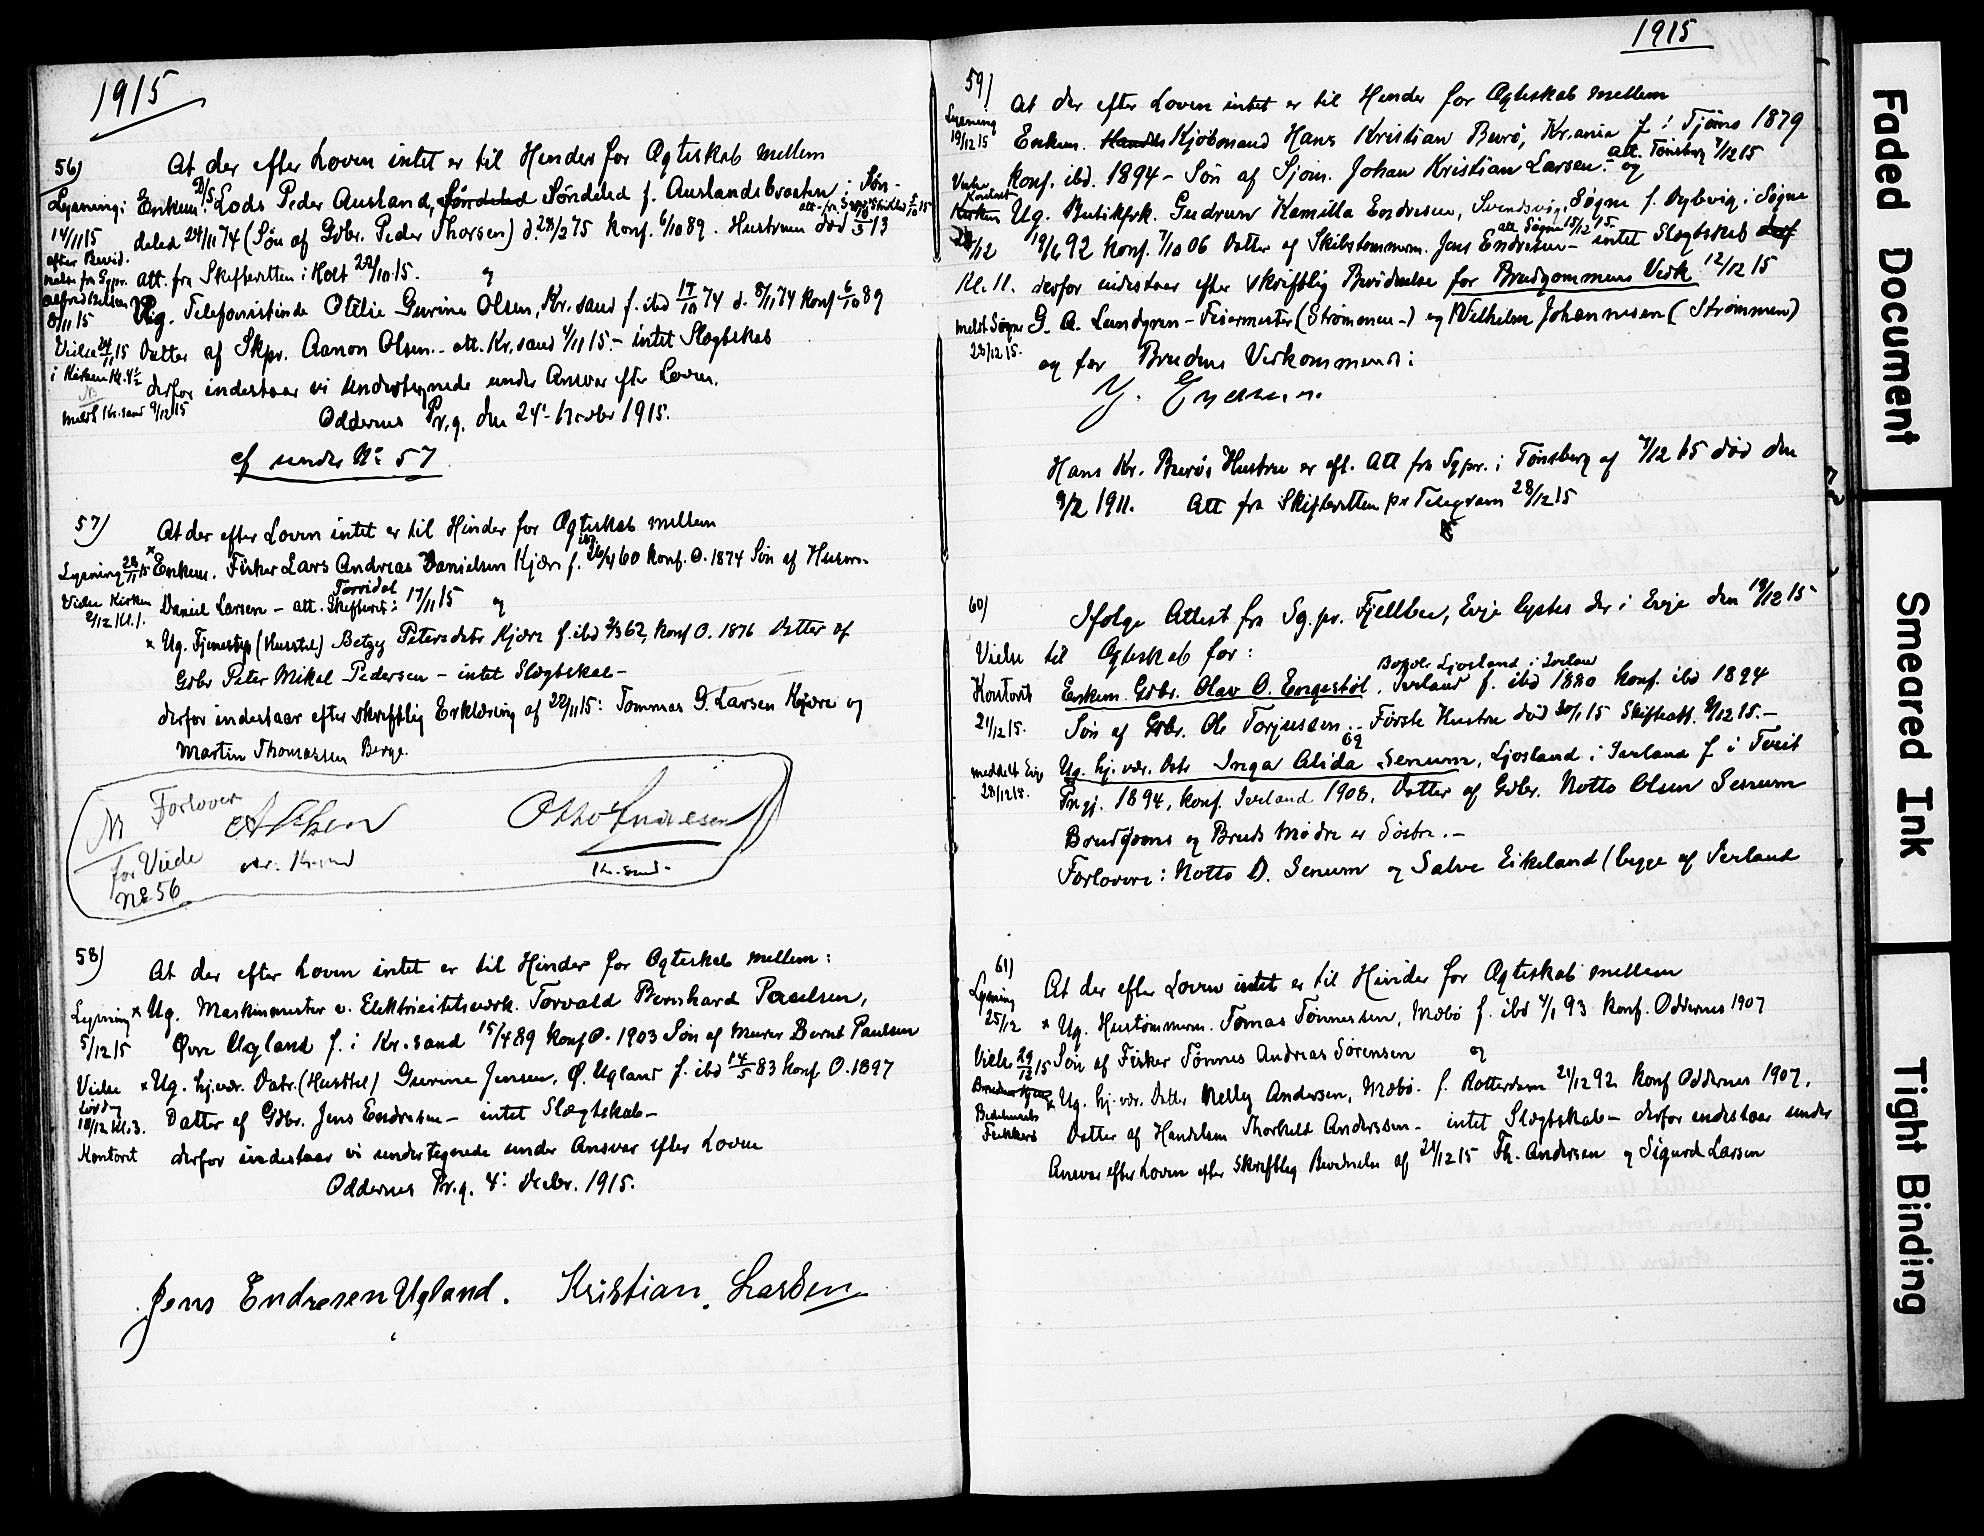 1915
56)
At der efter Loven intet er til Hinder for Ægteskab mellem
Lysning: Enkem. Lods Peder Ausland, Søndeled Søndeled f. Auslandsbraaten i Søn-
14/11 15 deled 24/11 74 (Søn af Gdbr. Peder Thorsen) d. 28/2 75 konf. 6/10 89. Hustruen død 13
efter Bevid. att. fra Skifteretten i Holt 22/10 15. og
nelse fra Sgpr.
8/11 15 Ug. Telefonistinde Otilie Gurine Olsen, Kr.sand f. ibd 17/10 74 d. 8/11 74 konf 6/10 89
Vielse 24/11 15 Datter af Skpr. Aanon Olsen - att. Kr.sand 4/11 15 - intet Slægtskab
i Kirken Kl. 4½ derfor indestaar vi Undertegnede under Ansvar efter Loven.
meldt Kr.sand 9/12 15
Oddernes Pr.g. den 24' Novbr 1915.
cf under No 57
57)
At der efter Loven intet er til Hinder for Ægteskab mellem
Lysning 28/11 15 × Enkem. Fisker Lars Andreas Danielsen Kjære f. ibd 26/4 60 konf. O. 1874 Søn af Husm.
Vielse Kirken Daniel Larsen - att. Skifteret: Torridal 17/11 15 og
2/12 Kl. 1.
× Ug. Tjenestep (Husstel) Betzy Petersdatr Kjære f. ibd 2/3 62, konf O. 1876 Datter af
Gdbr Peter Mikal Pedersen - intet Slægtskab -
derfor indestaar efter skriftlig Erklæring af 22/11 15: Tommas D. Larsen Kjære og
Martin Thomassen Berge.
Forlover
for Viede
No 56
Kr.sand
Kr.sand.
58)
At der efter Loven intet er til Hinder for Ægteskab mellem:
Lysning × Ug. Maskinmester v. Elektricitetsværk. Torvald Bernhard Paulsen,
5/12 15 Øvre Ugland f. i Kr.sand 15/4 89 konf O. 1903 Søn af Murer Bernt Paulsen
Vielse × Ug. hj.vær. Datr. (Husstel) Gurine Jensen, Ø. Ugland f. ibd 14/5 83 konf O. 1897
Lørdag Datter af Gdbr. Jens Endresen - intet Slægtskab -
18/12 Kl. 3.
Kontoret derfor indestaar vi undertegnede under Ansvar efter Loven
Oddernes Pr.g. 4: Decbr. 1915.
Jens Endresen Ugland. Kristian Larsen
1915
59)
At der efter Loven intet er til Hinder for Ægteskab mellem
Lysning
19/12 15 Enkem. Handls Kjøbmand Hans Kristian Burø, Kr.ania f. i Tjømø 1879
konf. ibd. 1894 - Søn af Sjøm. Johan Kristian Larsen - att. Tønsberg 7/12 15 og
Vielse
Kontoret
Kirken Ug. Butikfrk. Gudrun Kamilla Endresen, Svendsvig, Søgne f. Dybvig i Søgne
28/12 19/6 92 konf. 7/10 06 Datter af Skibstømmerm. Jens Endresen - att. Søgne 15/12 15. - intet Slægtskab derf
Kl. 11. derfor indestaar efter skriftlig Bevidnelse for Brudgommens Vedk. 12/12 15
meldt Søgne G. A. Lundgren - Feiermester (Strømmen -) og Wilhelm Johannesen (Strømmen)
28/12 15.
og for Brudens Vedkommende:
Hans Kr. Burøs Hustru er efl. Att fra Sgpr. i Tønsberg af 7/12 15 død den
9/2 1911. Att fra Skifteretten pr Telegram 28/12 15
60)
Ifølge Attest fra Sg.pr. Fjellbu, Evje lystes der i Evje den 19/12 15
Vielse til Ægteskab for:
Boende Ljosland i Iveland
Kontoret Enkem. Gdbr. Olav O. Engestøl, Iveland f. ibd 1880 konf. ibd 1894
21/12 15. Søn af Gdbr. Ole Torjussen. - Første Hustru død 30/1 15 Skifteatt. 9/12 15. -
og
meddelt Evje Ug. hj.vær. Datr Inga Alida Senum, Ljosland i Iveland f. i Tveit
28/12 15. Prgj. 1894, konf. Iveland 1908, Datter af Gdbr. Notto Olsen Senum
Brudgoms og Bruds Mødre er Søstre. -
Forlovere: Notto D. Senum og Salve Eikeland (begge af Iveland
61)
At der efter Loven intet er til Hinder for Ægteskab mellem
Lysning
25/12 × Ug. Hustømmerm. Tomas Tønnessen, Mæbø f. ibd 4/1 93 konf. Oddernes 1907
Vielse 29/12 15 Søn af Fisker Tønnes Andreas Sørensen og
× Ug. hj.vær. Datter Nelly Andersen, Mæbø. f. Rotterdam 21/12 92 konf Oddernes 1907.
Bedehuset
Flekkerø Datter af Handelsm Thorkeld Anderssen - intet Slægtskab - derfor indestaar under
Ansvar efter Loven efter Skriftlig Bevidnelse af 21/12 15 Th. Andersen og Sigurd Larsen
Faded Document
Smeared Ink
Tight Binding